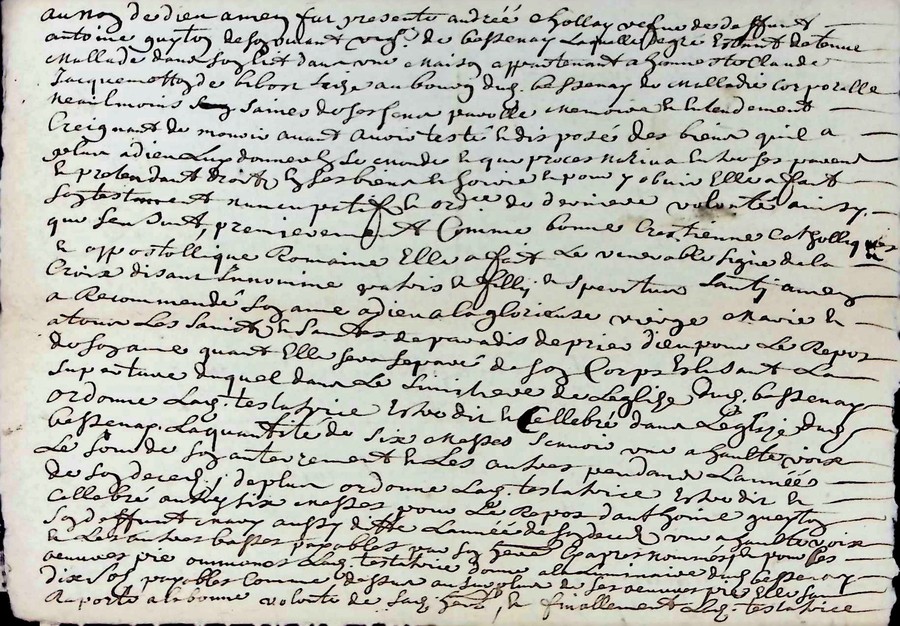 au nom de dieu amen fut presente andréé chollay vefve de deffunt
antoine guyton de son vivant vign. de bessenay laquelle de gré estant detenue
mallade dans son lict dans une maison appartenant a honneste Claude
Jacquemetton de libost size au bourg dud. bessenay de malladie corporelle
neailmoins saines de ses sens parolle memoire et entendement
Creignant de mourir avant avoir testé et disposé des biens qu'il a
plu a dieu luy donner en ce monde et que proces n'ariva entre ses parents
et pretendant droitz en ses biens et hoirie et pour y obvir Elle a faict
son testament nuncupatif et ord.re de derniere volonté ainsy
que sensuit, premierement Comme bonne Crestienne Catholique
et appostollique Romaine Elle a fait Le venerable signe de la
Croix disant In nomine patris et fillij et Spiritus Santij amen
a Recommandé son ame a dieu a la glorieuse vierge Marie et
a tous Les Saincts et Saintes de paradis de prier dieu pour Le Repos
de son ame quant Elle sera separée de son Corps Eslisant La
sepulture duquel dans Le Simittiere de Leglise dud. bessenay
ordonne Lad. testatrice Estre dit et Cellebré dans Leglise dud.
bessenay La quantité de six messes scavoir une a haulte voix
Le jour de son enterrement et Les autres pendant L'année
de son deceds, de plus ordonne Lad. testatrice Estre dit et
Cellebré six messes pour Le Repos d'anthoine guyton
son deffunt mary aussy dans L'année de son deceds une a haulte voix
et Les autres basses payables par son here. Cy apres nommé et pour les
oeuvres pie aumones Lad. testatrice donne au luminaire dud. bessenay
dix sols payables Comme dessus au surplus de ses oeuvres pie Elle s'en
Raporte a la bonne volonté de sond. here. et finallement Lad. testatrice